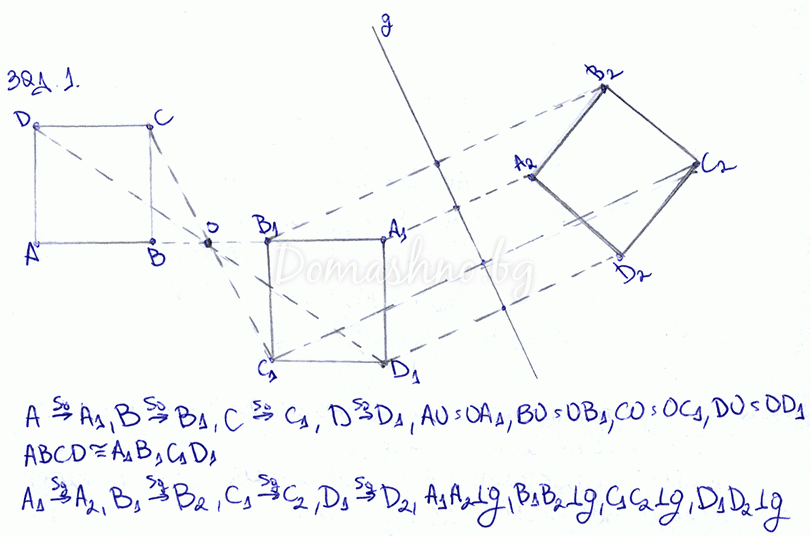 g
Зад. 1.
B₂
D C
A₂ C₂
O
B₁ A₁
A B
D₂
Domashno.bg
C₁ D₁
A S₀→ A₁, B S₀→ B₁, C S₀→ C₁, D S₀→ D₁, AO = OA₁, BO = OB₁, CO = OC₁, DO = OD₁
ABCD ≅ A₁B₁C₁D₁
A₁ Sg→ A₂, B₁ Sg→ B₂, C₁ Sg→ C₂, D₁ Sg→ D₂, A₁A₂⊥g, B₁B₂⊥g, C₁C₂⊥g, D₁D₂⊥g